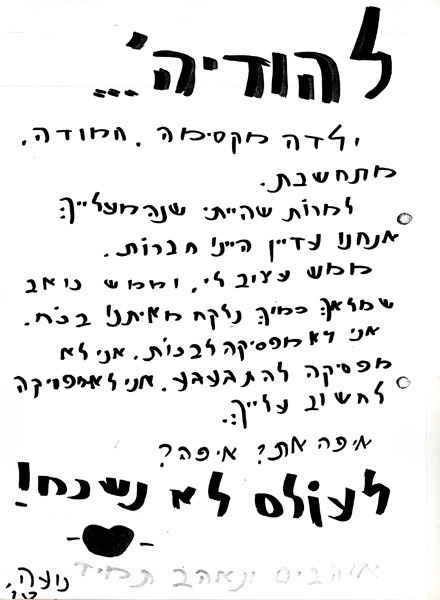 להודיה'...
ילדה מקסימה, חמודה,
מתחשבת.
למרות שהיית שנה מעלייך
אנחנו עדיין היינו חברות.
ממש עציב לי, וממש כואב
שמלאך כמוך נלקח מאיתנו בכח.
אני לא מפסיקה לבכות, אני לא
מפסיקה להתגעגע, אני לא מפסיקה
לחשוב עלייך.
איפה את? איפה?
לעולם לא נשכח!
אוהבים ונאהב תמיד
נועה,